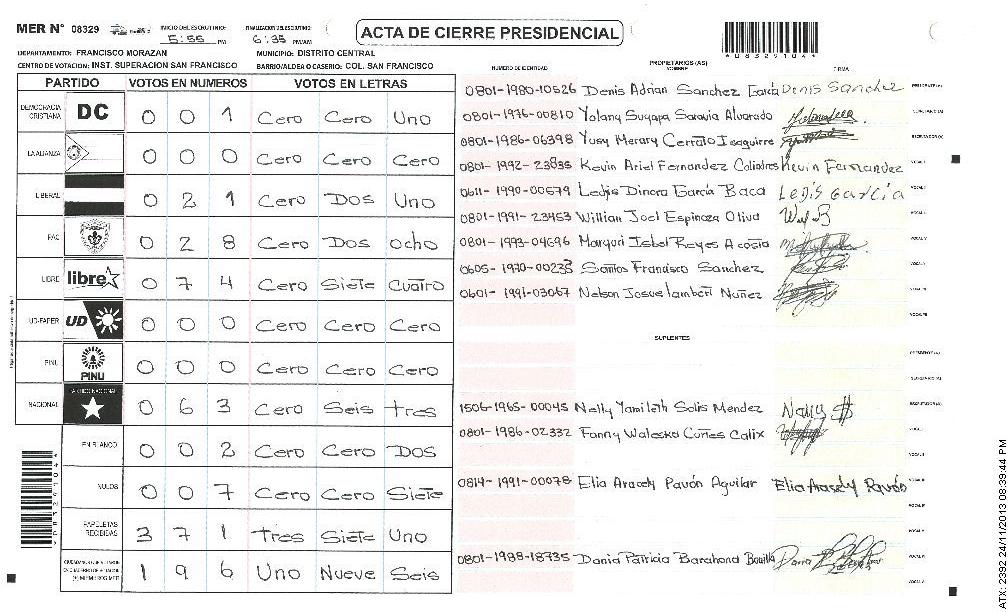 MER N° 08329
INICIO DEL ESCRUTINIO: 5:55 PM
FINALIZACION DEL ESCRUTINIO: 6:35 PM/AM
ACTA DE CIERRE PRESIDENCIAL
*08329104*
DEPARTAMENTO: FRANCISCO MORAZAN
MUNICIPIO: DISTRITO CENTRAL
CENTRO DE VOTACION: INST. SUPERACION SAN FRANCISCO
BARRIO/ALDEA O CASERIO: COL. SAN FRANCISCO
PARTIDO VOTOS EN NUMEROS VOTOS EN LETRAS
DEMOCRACIA CRISTIANA DC 0 0 1 Cero Cero Uno
LA ALIANZA 0 0 0 Cero Cero Cero
LIBERAL 0 2 1 Cero Dos Uno
PAC 0 2 8 Cero Dos ocho
LIBRE libre 0 7 4 Cero Siete cuatro
UD-FAPER UD 0 0 0 Cero Cero Cero
PINU PINU 0 0 0 Cero Cero Cero
NACIONAL PARTIDO NACIONAL 0 6 3 Cero Seis tres
EN BLANCO 0 0 2 Cero Cero Dos
NULOS 0 0 7 Cero Cero Siete
PAPELETAS RECIBIDAS 3 7 1 tres Siete Uno
1 9 6 Uno Nueve Seis
NUMERO DE IDENTIDAD
PROPIETARIOS (AS)
NOMBRE
FIRMA
0801-1980-10526 Denis Adrian Sanchez Garcia Denis Sanchez PRESIDENTE(A)
0801-1976-00810 Yolany Suyapa Saravia Alvarado SECRETARIO(A)
0801-1986-06398 Yusy Merary Cerrato Isaguirre ESCRUTADOR(A)
0801-1992-23835 Kevin Ariel Fernandez Colindres Kevin Fernandez
0611-1990-00579 Ledjis Dinora García Baca Ledjis García
0801-1991-23453 Willian Joel Espinoza Oliva
0801-1993-04696 Maryuri Isbel Reyes Acosta
0605-1970-00233 Santos Francisco Sanchez
0601-1991-03067 Nelson Josue Lambert Nuñez
SUPLENTES
PRESIDENTE(A)
SECRETARIO(A)
1506-1965-00045 Nelly Yamileth Solis Mendez Nelly ESCRUTADOR(A)
0801-1986-02332 Fanny Waleska Cortes Calix
0814-1991-00078 Elia Aracely Pavón Aguilar Elia Aracely Pavón
0801-1988-18735 Dania Patricia Barahona Bonilla Dania
ATX: 2392 24/11/2013 08:39:44 PM